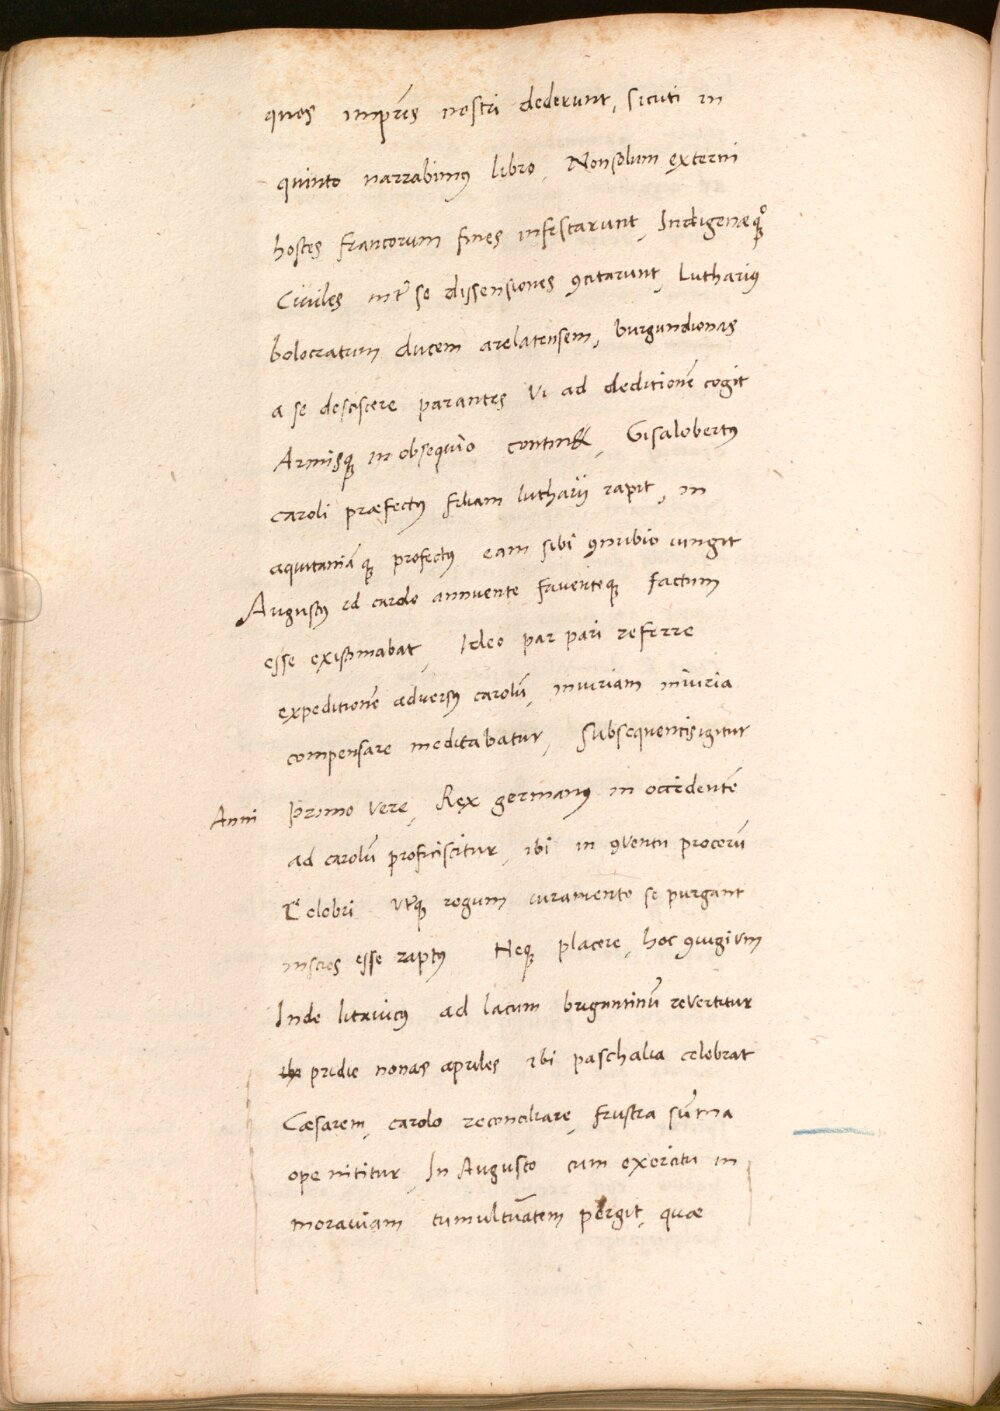 quos imp̄res nostri dederunt, sicuti in
quinto narrabimꝰ libro, Non solum externi
hostes francorum fines infestarunt, Indigenæqꝫ
Ciuiles int̄ se dissensiones ꝯcitarunt, Lutharius
bolocratum ducem arelatensem, burgundionas
a se desciscere parantes vi ad deditionē cogit
Armisqꝫ in obsequio continet, Gisalobertꝰ
caroli præfectꝰ filiam lutharij rapit, in
aquitaniā qꝫ profectꝰ eam sibi ꝯnubio iungit
Augustꝰ id carolo annuente fauenteque factum
esse existimabat, Ideo par pari referre
expeditionē aduersꝰ carolū, iniuriam iniuria
compensare meditabatur, Subsequentis igitur
Anni primo vere, Rex germanꝰ in occidentē
ad carolū proficiscitur, ibi in ꝯventu procerū
Celebri vt̄qꝫ regum iuramento se purgant
inscios esse raptꝰ Neqꝫ placere, hoc ꝯiugium
Inde litauicꝰ ad lacum brigantinū revertitur
pridie nonas apriles ibi paschalia celebrat
Cæsarem, carolo reconciliare, frustra sūma
ope nititur, In Augusto cum exercitu in
morauiam tumultuātem pergit, quæ